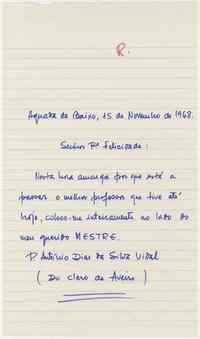 R.
Aguada de Baixo, 15 de Novembro de 1968.
Senhor Pe Felicidade:
Nesta hora amarga por que está a
passar o melhor professor que tive até
hoje, coloco-me inteiramente ao lado do
meu querido MESTRE.
P. António Dias da Silva Vidal
(Do clero de Aveiro)